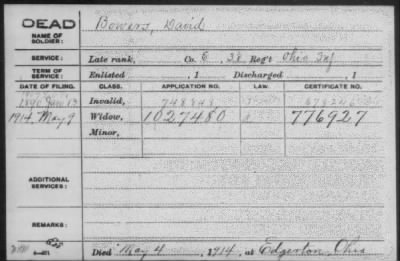 DEAD Bowers, David
NAME OF
SOLDIER:
SERVICE: Late rank, Co. E, 38 Reg't Ohio Inf
TERM OF
SERVICE: Enlisted , 1 Discharged , 1
DATE OF FILING. CLASS. APPLICATION NO. LAW. CERTIFICATE NO.
1890 Invalid, 748848
1914, May 9 Widow, 1027480 776927
Minor,
ADDITIONAL
SERVICES:
REMARKS:
Died May 4, 1914, at Edgerton, Ohio